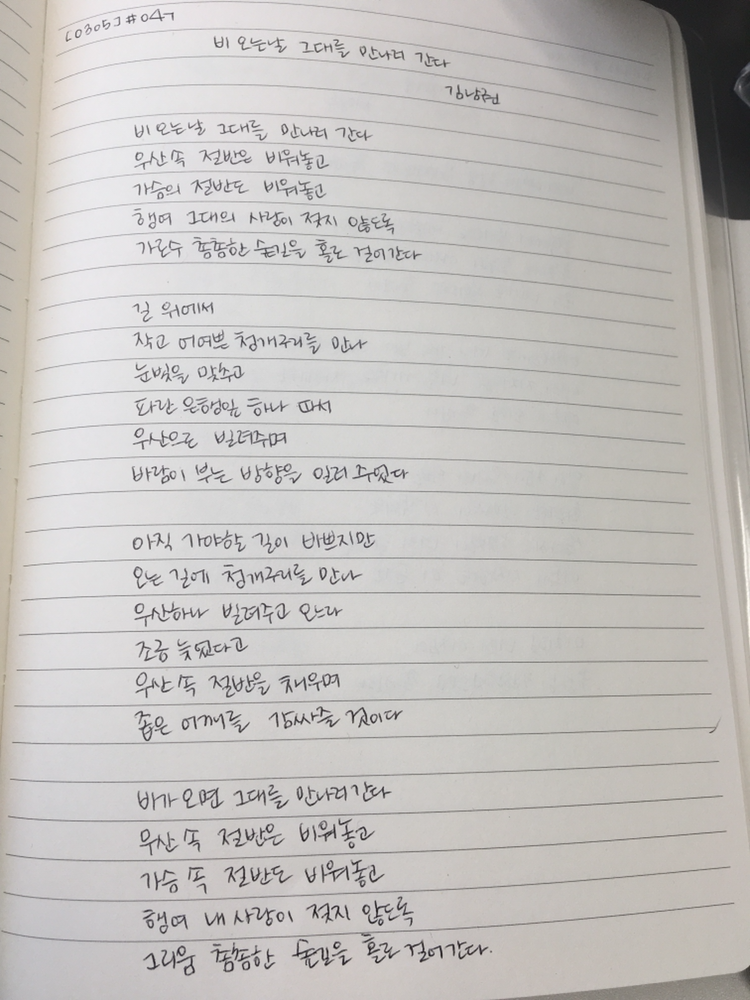 [0305] #047
비 오는날 그대를 만나러 간다
김남권
비 오는날 그대를 만나러 간다
우산 속 절반은 비워놓고
가슴의 절반도 비워놓고
행여 그대의 사랑이 젖지 않도록
가로수 총총한 숲길을 홀로 걸어간다
길 위에서
작고 어여쁜 청개구리를 만나
눈빛을 맞추고
파란 은행잎 하나 따서
우산으로 빌려주며
바람이 부는 방향을 일러 주었다
아직 가야할 길이 바쁘지만
오는 길에 청개구리를 만나
우산하나 빌려주고 오느라
조금 늦었다고
우산 속 절반을 채우며
좁은 어깨를 감싸줄 것이다
비가 오면 그대를 만나러 간다
우산 속 절반은 비워놓고
가슴 속 절반도 비워놓고
행여 내 사랑이 젖지 않도록
그리움 총총한 숲길을 홀로 걸어간다.